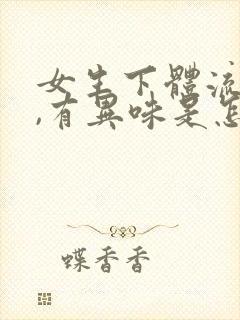 女生下體流
,有異味是怎
蝶香香